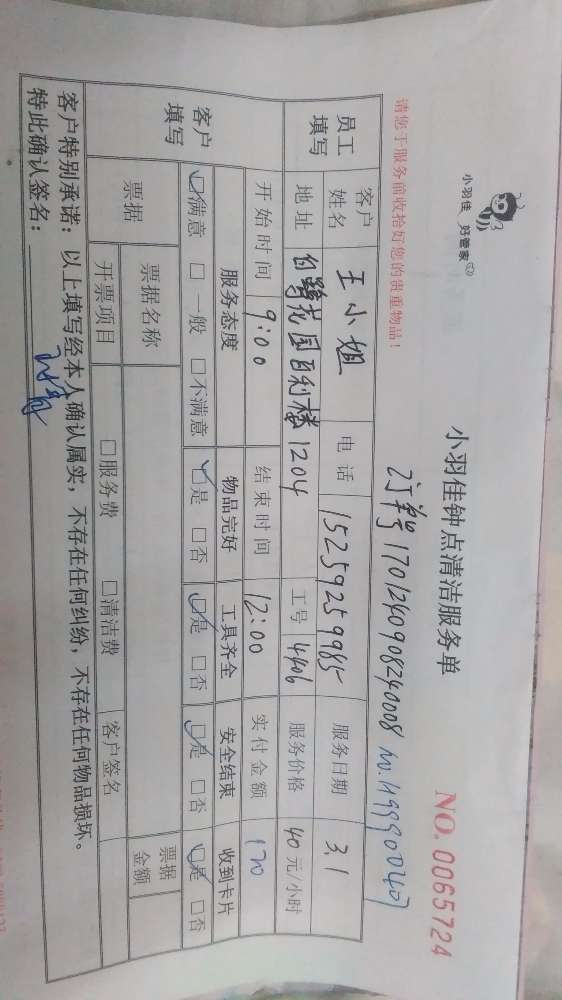 小羽佳 好管家
小羽佳钟点清洁服务单
NO. 0065724
请您于服务前收拾好您的贵重物品！
1701240908240008
员工填写 客户姓名 王小姐 电话 15259259985 服务日期 3.1
地址 百利楼1204 工号 4406 服务价格 40元/小时
客户填写 开始时间 9:00 结束时间 12:00 实付金额 120
服务态度 物品完好 工具齐全 安全结束 收到卡片
□满意 □一般 □不满意 □是 □否 □是 □否 □是 □否 □是 □否
票据 票据名称 票据金额
开票项目 □服务费 □清洁费 客户签名
客户特别承诺：以上填写经本人确认属实，不存在任何纠纷，不存在任何物品损坏。
特此确认签名：